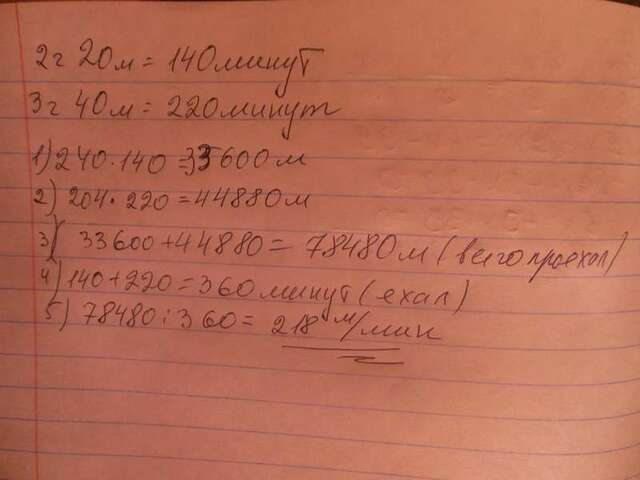 2г 20м = 140 минут
3г 40м = 220 минут
1) 240 · 140 = 33600 м
2) 204 · 220 = 44880 м
3) 33600 + 44880 = 78480 м (всего проехал)
4) 140 + 220 = 360 минут (ехал)
5) 78480 : 360 = 218 м/мин